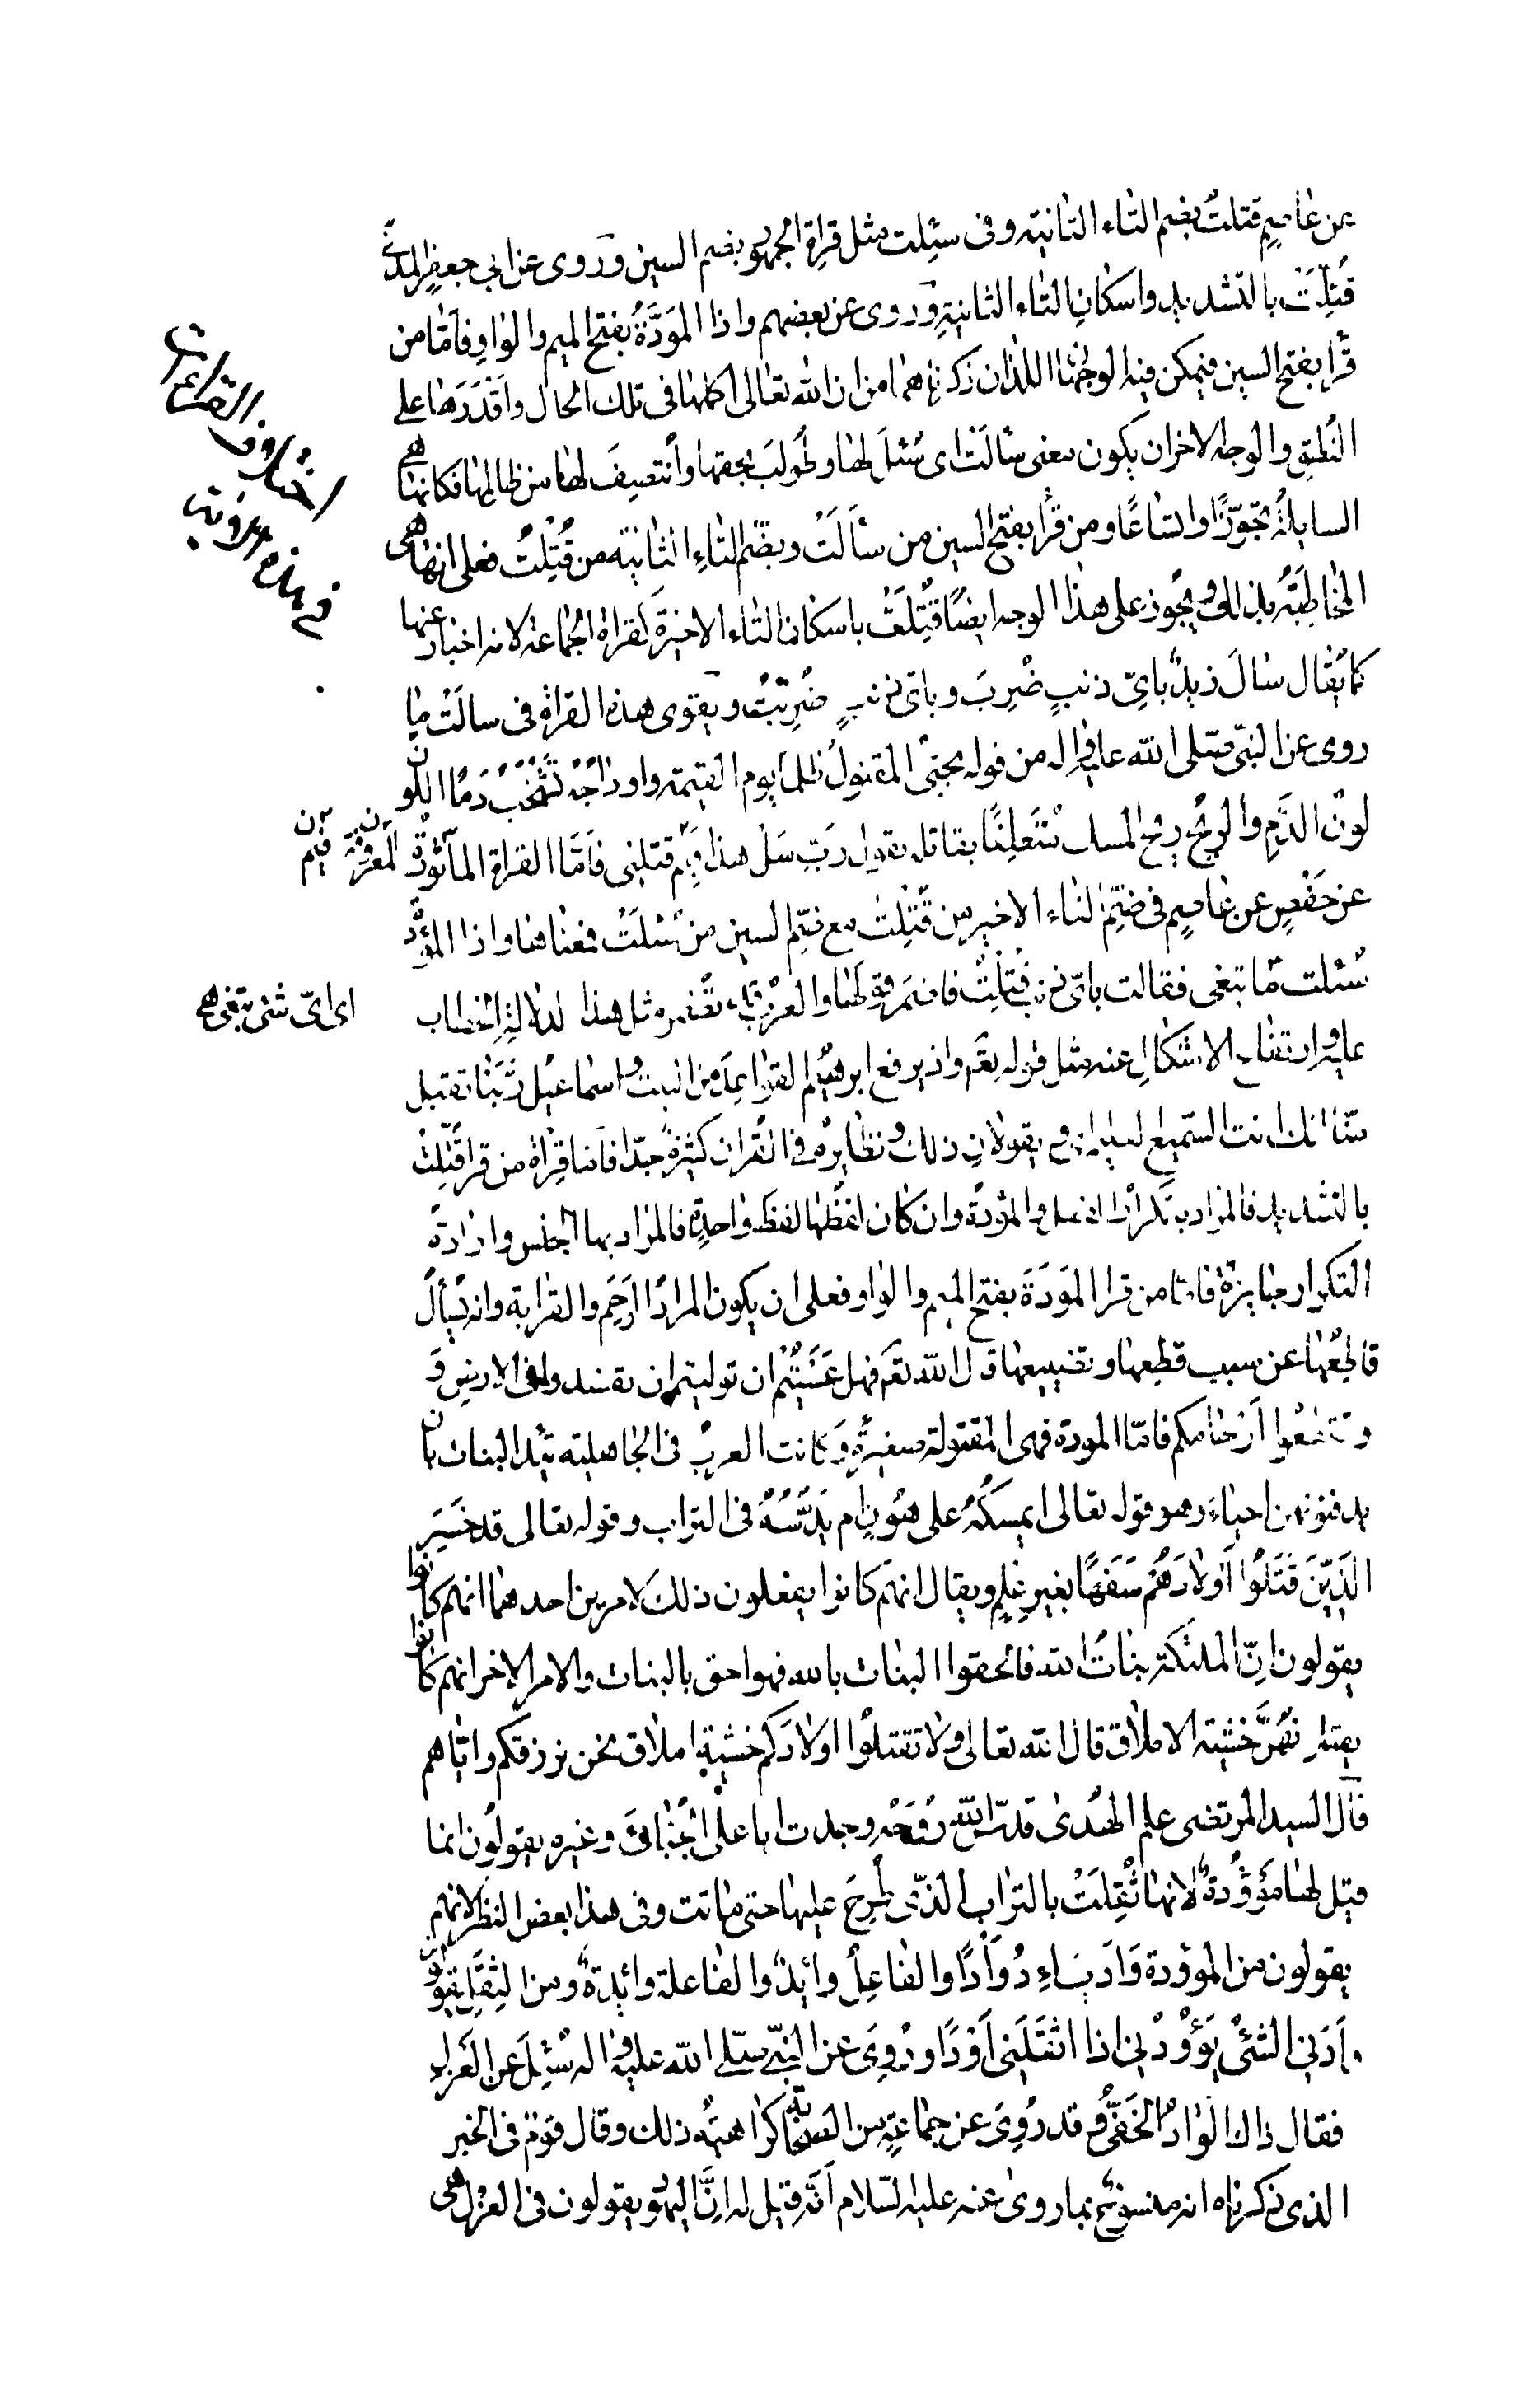 عن عاصم قتلتُ بضم التاء الثانية وفى سئِلت مثل قراة الجمهور بضم السين وروى عن ابى جعفر المدنى
قُتِّلَتْ بالتشديد واسكان التاء الثانيةِ وروى عن بعضهم واذا المَوَدَّةُ بفتح الميم والواو فامّا من
قرأ بفتح السين فيمكن فيه الوجهان اللذان ذكرناهما من ان الله تعالى اكملها فى تلك الحال واَقْدَرَها على
النُطقِ والوجه الاخر ان يكون معنى سَألَتْ اى سُئلَ لها وطُولبَ بحقها وانتصِفَ لها من ظالمها فكانها هى
السايلةُ تجوّزًا واتساعًا ومن قرأ بفتح السين من سَأَلَتْ وبضم التاءِ الثانيه من قُتِلْتُ فعلى انها هى
المخاطبَةُ بذلك ويجوز على هذا الوجه ايضًا قُتِلَتْ باسكان التاء الاخيرة كقراة الجماعة لانه اخبار عنها
كما يُقال سال زيدٌ باىّ ذنبٍ ضُرِبَ وباى ذنبٍ ضُرِبْتُ ويقوى هذه القراة فى سالَتْ ما
روى عن النبى صلى الله عليه واله من قوله يجئ المقتولُ ظلماً يوم القيمة واوداجُه تَشْخَبُ دَمًا اللون
لون الدَّمِ والريحُ ريحُ المسك متعلِّقًا بقاتله يقول ربّ سَلْ هذا فِيمَ قتلنى فامّا القراة الماثورة
المعروفة ن
فيم ن
عن حَفْصٍ عن عاصمٍ فى ضمِّ التاء الاخيرة من قُتِلْتُ مع ضمِّ السين من سُئلَتْ فمعناها واذا المؤودة
سُئلت ما تبغى فقالت باىّ ذنب قُتِلْتُ فاضمَر قولها والعرب قد تضمر مثل هذا لدلالةِ الخطاب
اى اىّ شئ تبغى هى
عليه وارتفاع الاشكالِ عنه مثل قوله تعَم واذ يرفع ابرهيم القواعد من البيت واسماعيل رَبَّنا تقبل
منّا انك انت السّميع العليم اى ويقولان ذلك ونظايره فى القران كثيرةٌ جدّا فامّا قراة من قرا قُتِّلَتْ
بالتشديد فالمراد به تكرار الفعل والمؤدة وان كان لفظُها لفظَ واحدةٍ فالمراد بها الجنس وارادةُ
التكرار جايزةٌ فامّا من قرا المَوَدَّةَ بفتح الميم والواو فعلى ان يكون المرادُ الرَحِمَ والقرابة وانه يُسألُ
قاطِعُها عن سبب قطعها وتضييعها قال الله تعَم فهل عَسَيْتُم ان توليتم ان تفسدوا فى الارض وَ
وتقطّعُوا اَرْحامكم فامّا المودة فهى المقتولة صغيرةً وكانت العرب فى الجاهلية تئد البنات بان
يدفنونهن احياءً وهو قوله تعالى ايمسكُهُ على هُونٍ ام يَدُسُّهُ فى التراب وقوله تعالى قد خَسِرَ
الَّذِينَ قَتَلُوا اَولادَهُم سَفَهًا بغير عِلمٍ ويقال انهم كانوا يفعلون ذلك لامرين احدهما انهم كانوا
يقولون انّ الملئكة بناتُ الله فالحقوا البنات بالله فهو احق بالبنات والامر الاخر انهم كانوا
يقتلونهُنَّ خشيةَ الاملاق قال الله تعالى ولا تقتلُوا اولادكم خشية املاق نحن نرزقكم واياهم
قال السيد المرتضى علم الهدى قدس الله روحَه وجدت ابا علىّ الجُبّائى وغيره يقولون انما
قيل لها مَوؤُدةٌ لانها ثُقِلَتْ بالتراب الذى طُرِحَ عليها حتى ماتت وفى هذا بعض النظر لانهم
يقولون من المؤودة وَاَدَ يَئِدُ وَأْدًا والفاعِلُ وائِدٌ والفاعلة وائدةٌ ومن الثِقَلِ يقولون
اَدَنى الشئُ يَؤُودُنى اذا اثقَلَنى اَوْدًا ورُوِىَ عن النبى صلى الله عليه واله انه سُئِلَ عن العزل
فقال ذاك الوَأْدُ الخَفِىُّ وقد رُوِىَ عن جماعةٍ من الصحابة كراهيةُ ذلك وقال قومٌ فى الخبر
الذى ذكرناه انه منسوخ بما روى عنه عليه السّلام اَنّه قيل له اِنَّ اليهود يقولون فى العزل هى
اختلاف القراءات
فى هذه الاية